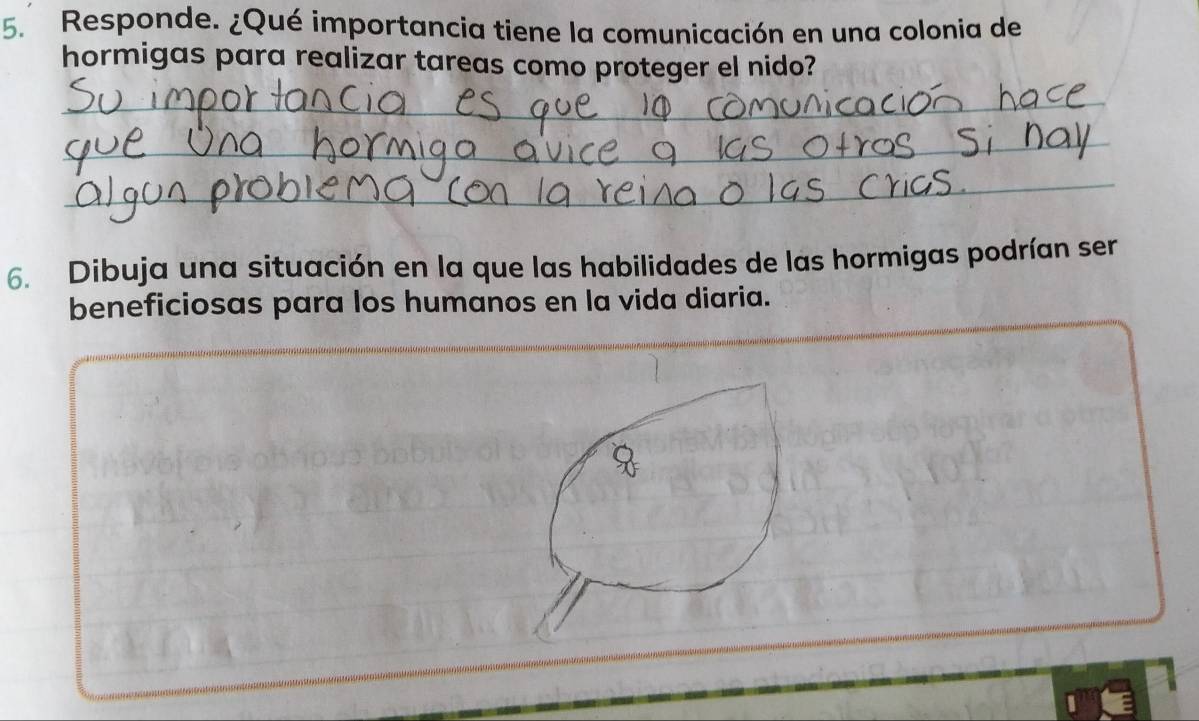 5. Responde. ¿Qué importancia tiene la comunicación en una colonia de
hormigas para realizar tareas como proteger el nido?
Su importancia es que la comunicación hace
que una hormiga avice a las otras si hay
algun problema con la reina o las crias.
6. Dibuja una situación en la que las habilidades de las hormigas podrían ser
beneficiosas para los humanos en la vida diaria.